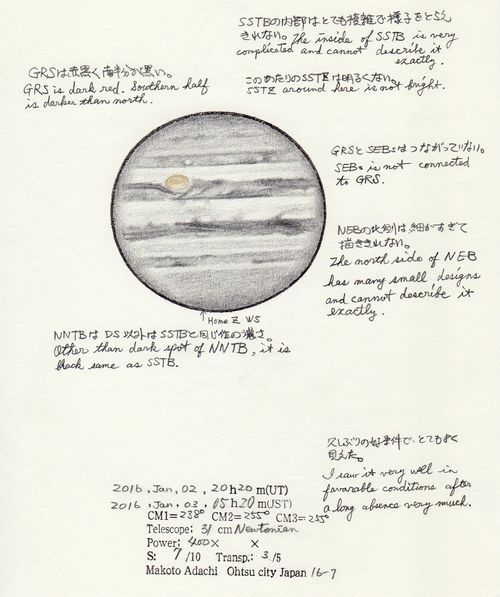 SSTBの内部はとても複雑で様子をとらえ
きれない。The inside of SSTB is very
complicated and cannot describe it
exactly.
このあたりのSSTZは明るくない。
SSTZ around here is not bright.
GRSは赤黒く南半分が黒い。
GRS is dark red. Southern half
is darker than north.
GRSとSEBsはつながっていない。
SEBs is not connected
to GRS.
NEBの北側は細かすぎて
描ききれない。
The north side of NEB
has many small designs
and cannot describe it
exactly.
↑Home Z WS
NNTBはDS以外はSSTBと同じ位の濃さ。
Other than dark spot of NNTB, it is
black same as SSTB.
久しぶりの好条件で、とてもよく
見えた。
I saw it very well in
favarable conditions after
a long abence very much.
2016, Jan, 02, 20h20m(UT)
2016, Jan, 03, 05h20m(JST)
CM1=238° CM2=255° CM3=255°
Telescope: 31 cm Newtonian
Power: 400× ×
S: 7/10 Transp.: 3/5
Makoto Adachi Ohtsu city Japan 16-7